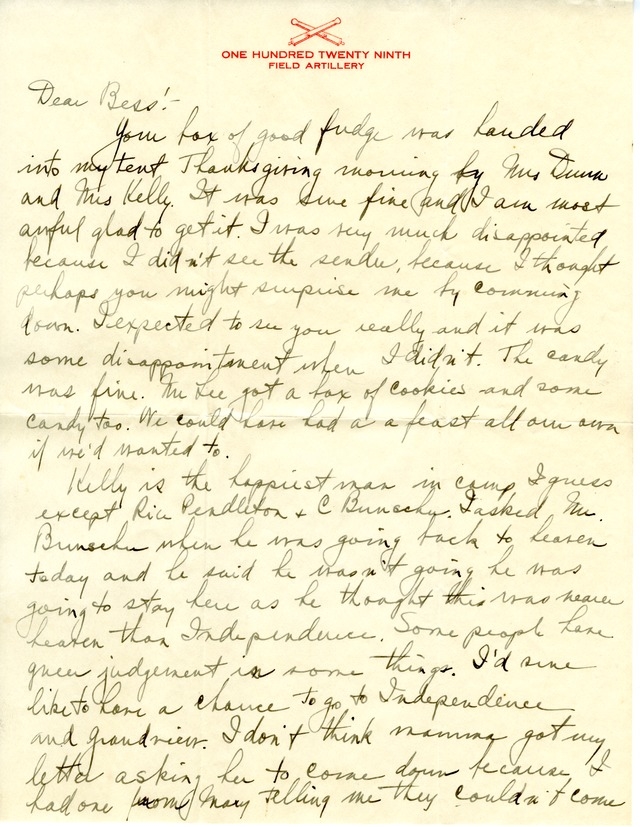 ONE HUNDRED TWENTY NINTH
FIELD ARTILLERY
Dear Bess:-
Your box of good fudge was handed
into my tent Thanksgiving morning by Mrs Dunn
and Mrs Kelly. It was sure fine (and) I am most
awful glad to get it. I was very much disappointed
because I didn't see the sender, because I thought
perhaps you might surprise me by comming
down. I expected to see you really and it was
some disappointment when I didn't. The candy
was fine. Mr Lee got a box of cookies and some
candy too. We could have had a a feast all our own
if we'd wanted to.
Kelly is the happiest man in camp I guess
except Rice Pendleton + C Bunschu. I asked Mr.
Bunschu when he was going back to heaven
today and he said he wasn't going he was
going to stay here as he thought this was nearer
heaven than Independence. Some people have
queer judgement in some things. I'd sure
like to have a chance to go to Independence
and grandview. I don't think mamma got my
letter asking her to come down because I
had one from Mary telling me they couldn't come